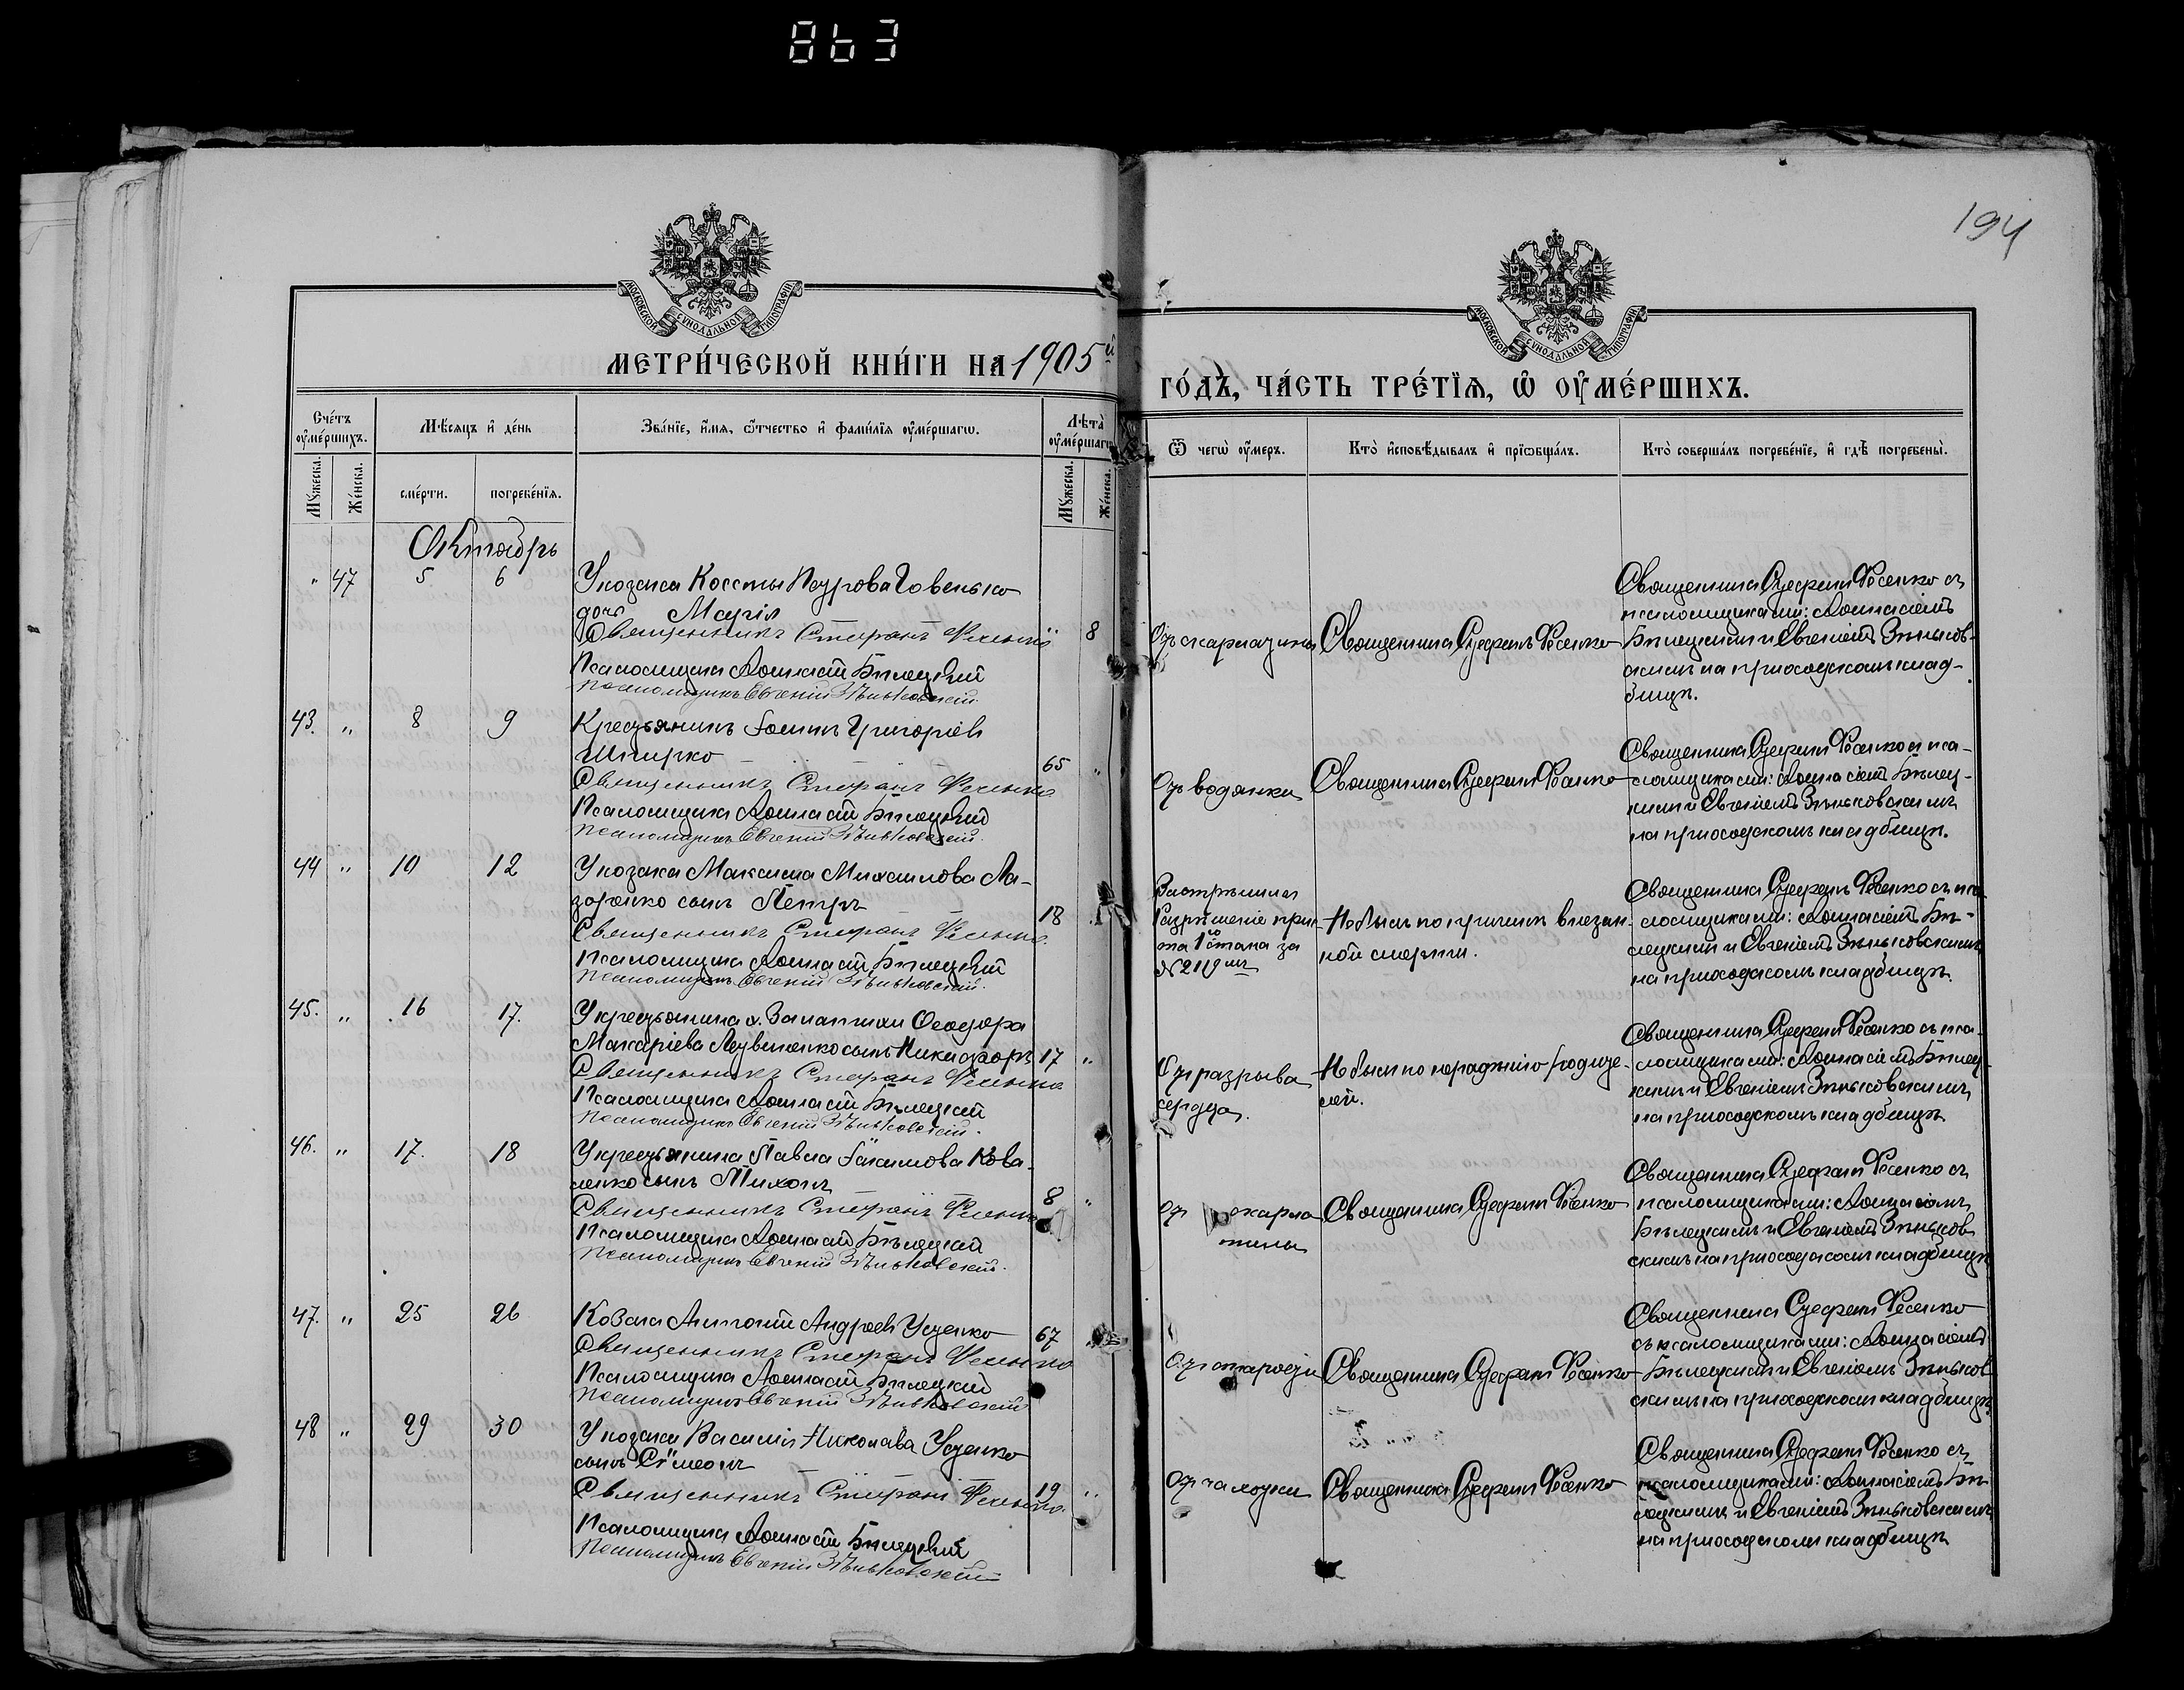 863
194
МОСКОВСКОЙ СѴНОДАЛЬНОЙ ТИПОГРАФІИ
МОСКОВСКОЙ СѴНОДАЛЬНОЙ ТИПОГРАФІИ
МЕТРИ́ЧЕСКОЙ КНИ́ГИ НА 1905й
ГО́ДЪ, ЧА́СТЬ ТРЕ́ТІѦ, Ѡ ОУМЕ́РШИХЪ.
Сче́тъ оумершихъ.
Мѣсяцъ и де́нь
Зва́нїе, и́мя, ѿтчество и фами́лїя оумершагѡ.
Лѣта̀ оумершагѡ
Мꙋжеска.
Же́нска.
сме́рти.
погребе́нїя.
Мꙋжеска.
Же́нска.
Ѿ чегѡ̀ оумеръ.
Кто̀ исповѣдывалъ и прїѡбща́лъ.
Кто̀ соверша́лъ погребе́нїе, и гдѣ̀ погребены̀.
Октябрь
" 47 5 6
У козака Косьмы Петрова Говенько
дочь Марія
Священникъ Стефанъ Фесенко
8
Псаломщикъ Аѳанасій Бѣлецкій
Псаломщикъ Евгеній Зѣньковскій.
Отъ скарлатины
Священникъ Стефанъ Фесенко
Священникъ Стефанъ Фесенко съ
псаломщиками: Аѳанасіемъ
Бѣлецкимъ и Евгеніемъ Зѣньков-
скимъ на приходскомъ клад-
бищѣ.
43. " 8 9
Крестьянинъ Іоаннъ Григоріевъ
Шпирко
65 "
Священникъ Стефанъ Фесенко
Псаломщикъ Аѳанасій Бѣлецкій
Псаломщикъ Евгеній Зѣньковскій.
Отъ водянки
Священникъ Стефанъ Фесенко
Священникъ Стефанъ Фесенко съ пса-
ломщиками: Аѳанасіемъ Бѣлец-
кимъ и Евгеніемъ Зѣньковскимъ
на приходскомъ кладбищѣ.
44 " 10 12
У козака Максима Михаилова Ла-
заренко сынъ Петръ
18
Священникъ Стефанъ Фесенко.
Псаломщикъ Аѳанасій Бѣлецкій
Псаломщикъ Евгеній Зѣньковскій.
Застрѣлился
Разрѣшеніе прис-
та 1го стана за
№ 2119мъ
Не былъ по причинѣ внезап-
ной смерти.
Священникъ Стефанъ Фесенко съ пса-
ломщиками: Аѳанасіемъ Бѣ-
лецкимъ и Евгеніемъ Зѣньковскимъ
на приходскомъ кладбищѣ.
45. " 16 17.
У крестьянина х. Ѳеодора
Макаріева Литвиненко сынъ Никифоръ
17 "
Священникъ Стефанъ Фесенко
Псаломщикъ Аѳанасій Бѣлецкій
Псаломщикъ Евгеній Зѣньковскій.
Отъ разрыва
сердца.
Не былъ по нерадѣнію родите-
лей.
Священникъ Стефанъ Фесенко съ пса-
ломщиками: Аѳанасіемъ Бѣлец-
кимъ и Евгеніемъ Зѣньковскимъ
на приходскомъ кладбищѣ.
46. " 17. 18
У крестьянина Павла Іакимова Кова-
ленко сынъ Тихонъ
8 "
Священникъ Стефанъ Фесенко
Псаломщикъ Аѳанасій Бѣлецкій
Псаломщикъ Евгеній Зѣньковскій.
Отъ скарла-
тины
Священникъ Стефанъ Фесенко
Священникъ Стефанъ Фесенко съ
псаломщиками: Аѳанасіемъ
Бѣлецкимъ и Евгеніемъ Зѣньков-
скимъ на приходскомъ кладбищѣ
47. " 25 26
Козакъ Антоній Андреевъ Усенко
67 "
Священникъ Стефанъ Фесенко
Псаломщикъ Аѳанасій Бѣлецкій
Псаломщикъ Евгеній Зѣньковскій
Отъ старости
Священникъ Стефанъ Фесенко
Священникъ Стефанъ Фесенко
съ псаломщиками: Аѳанасіемъ
Бѣлецкимъ и Евгеніемъ Зѣньков-
скимъ на приходскомъ кладбищѣ.
48 " 29 30
У козака Василія Николаева Усенко
сынъ Сѵмеонъ
19 "
Священникъ Стефанъ Фесенко.
Псаломщикъ Аѳанасій Бѣлецкій
Псаломщикъ Евгеній Зѣньковскій
Отъ чахотки
Священникъ Стефанъ Фесенко
Священникъ Стефанъ Фесенко съ
псаломщиками: Аѳанасіемъ Бѣ-
лецкимъ и Евгеніемъ Зѣньковскимъ
на приходскомъ кладбищѣ